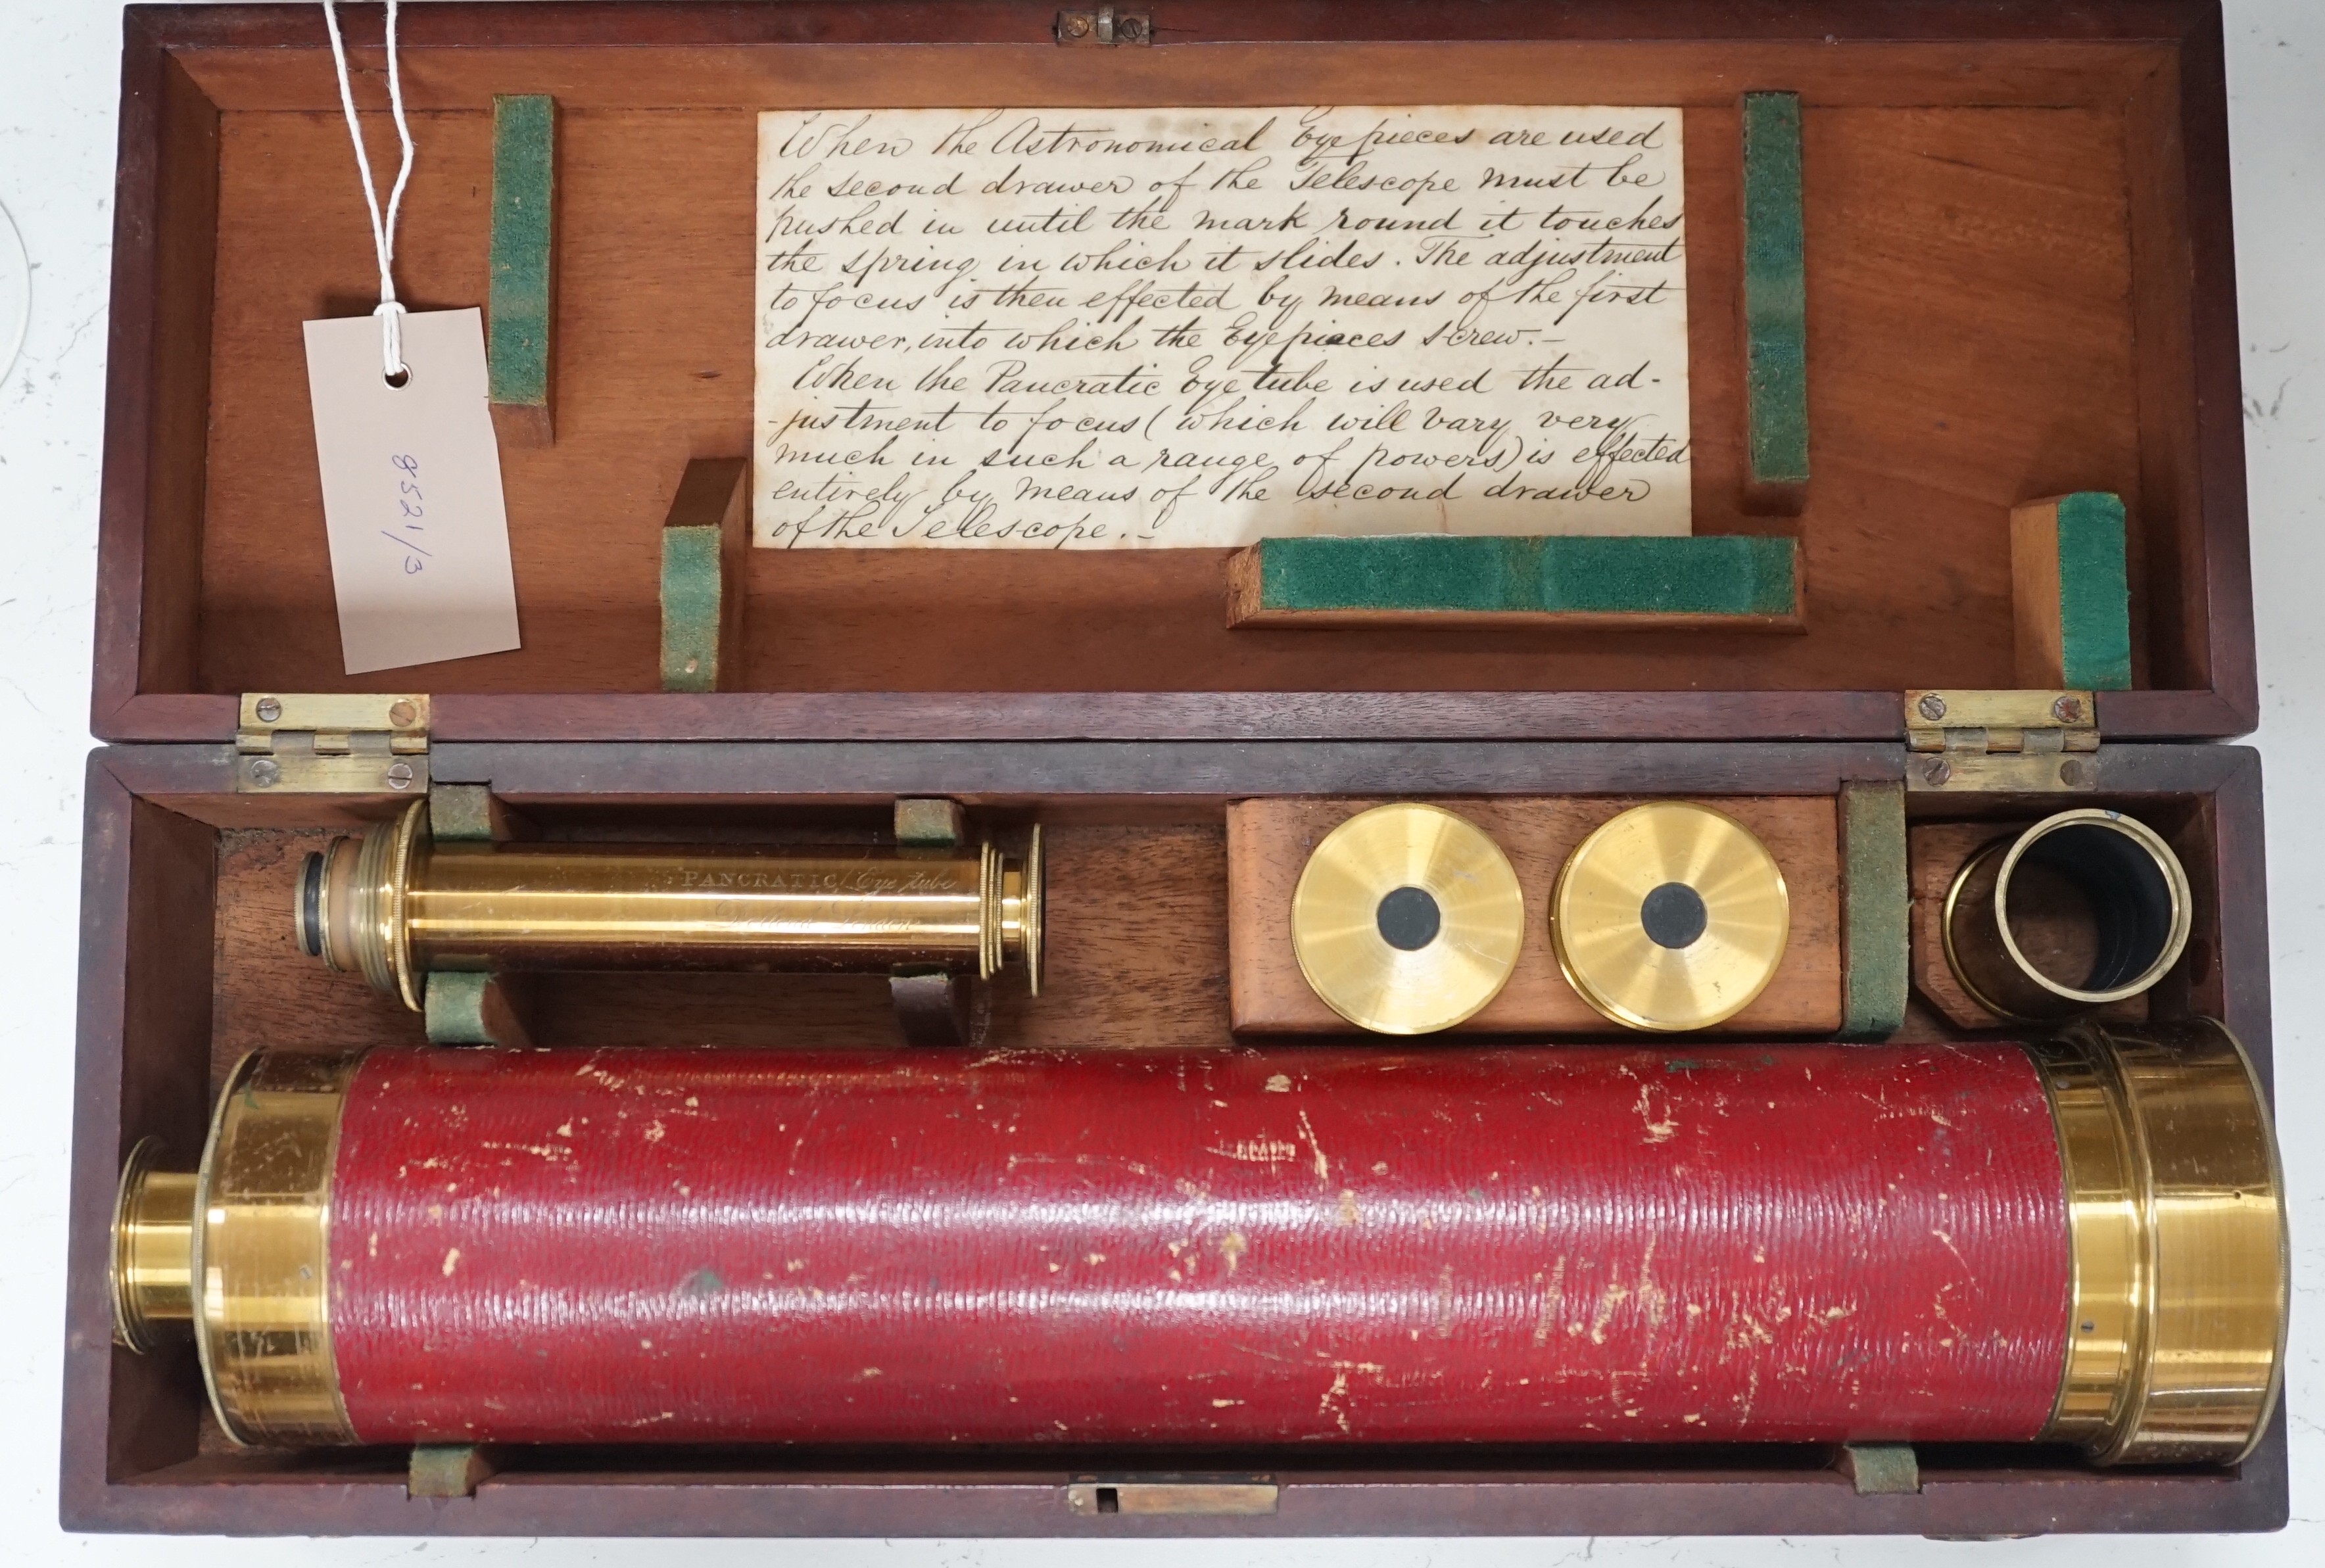 When the Astronomical Eyepieces are used
the second drawer of the Telescope must be
pushed in until the mark round it touches
the spring in which it slides. The adjustment
to focus is then effected by means of the first
drawer, into which the Eyepieces screw. -
When the Pancratic Eye tube is used the ad-
-justment to focus (which will vary very
much in such a range of powers) is effected
entirely by means of the second drawer
of the Telescope. -
8521/3
PANCRATIC Eye tube
London